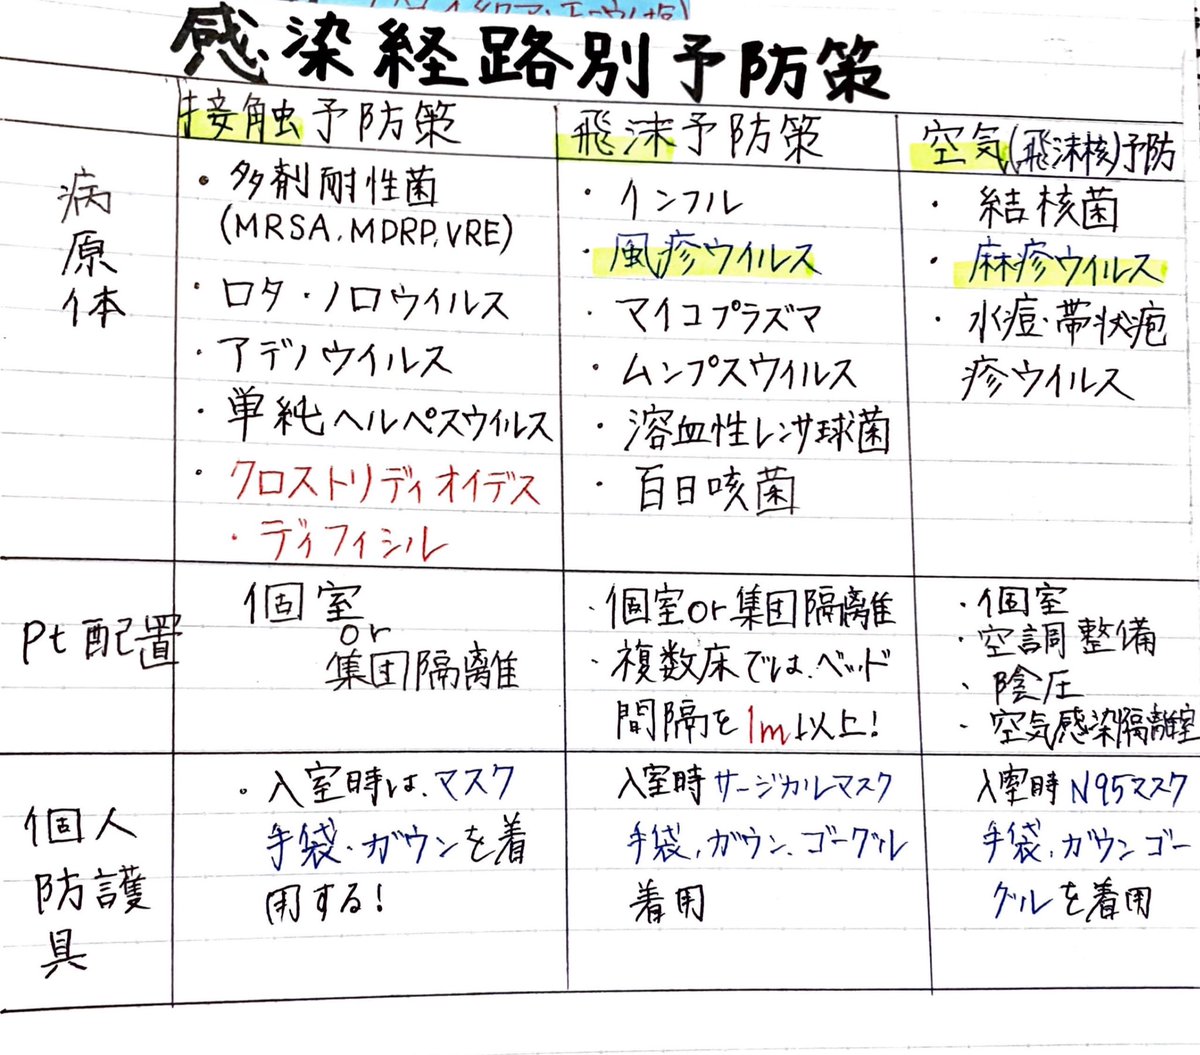 感染経路別予防策
接触予防策
飛沫予防策
空気(飛沫核)予防
病原体
・多剤耐性菌
(MRSA.MDRP,VRE)
・ロタ・ノロウイルス
・アデノウイルス
・単純ヘルペスウイルス
・クロストリディオイデス
・ディフィシル
・インフル
・風疹ウイルス
・マイコプラズマ
・ムンプスウイルス
・溶血性レンサ球菌
・百日咳菌
・結核菌
・麻疹ウイルス
・水痘・帯状疱
疹ウイルス
Pt配置
個室
or
集団隔離
・個室or集団隔離
・複数床では、ベッド
間隔を1m以上!
・個室
・空調整備
・陰圧
・空気感染隔離室
個人
防護
具
・入室時は、マスク
手袋、ガウンを着
用する!
入室時サージカルマスク
手袋、ガウン、ゴーグル
着用
入室時N95マスク
手袋、ガウンゴー
グルを着用